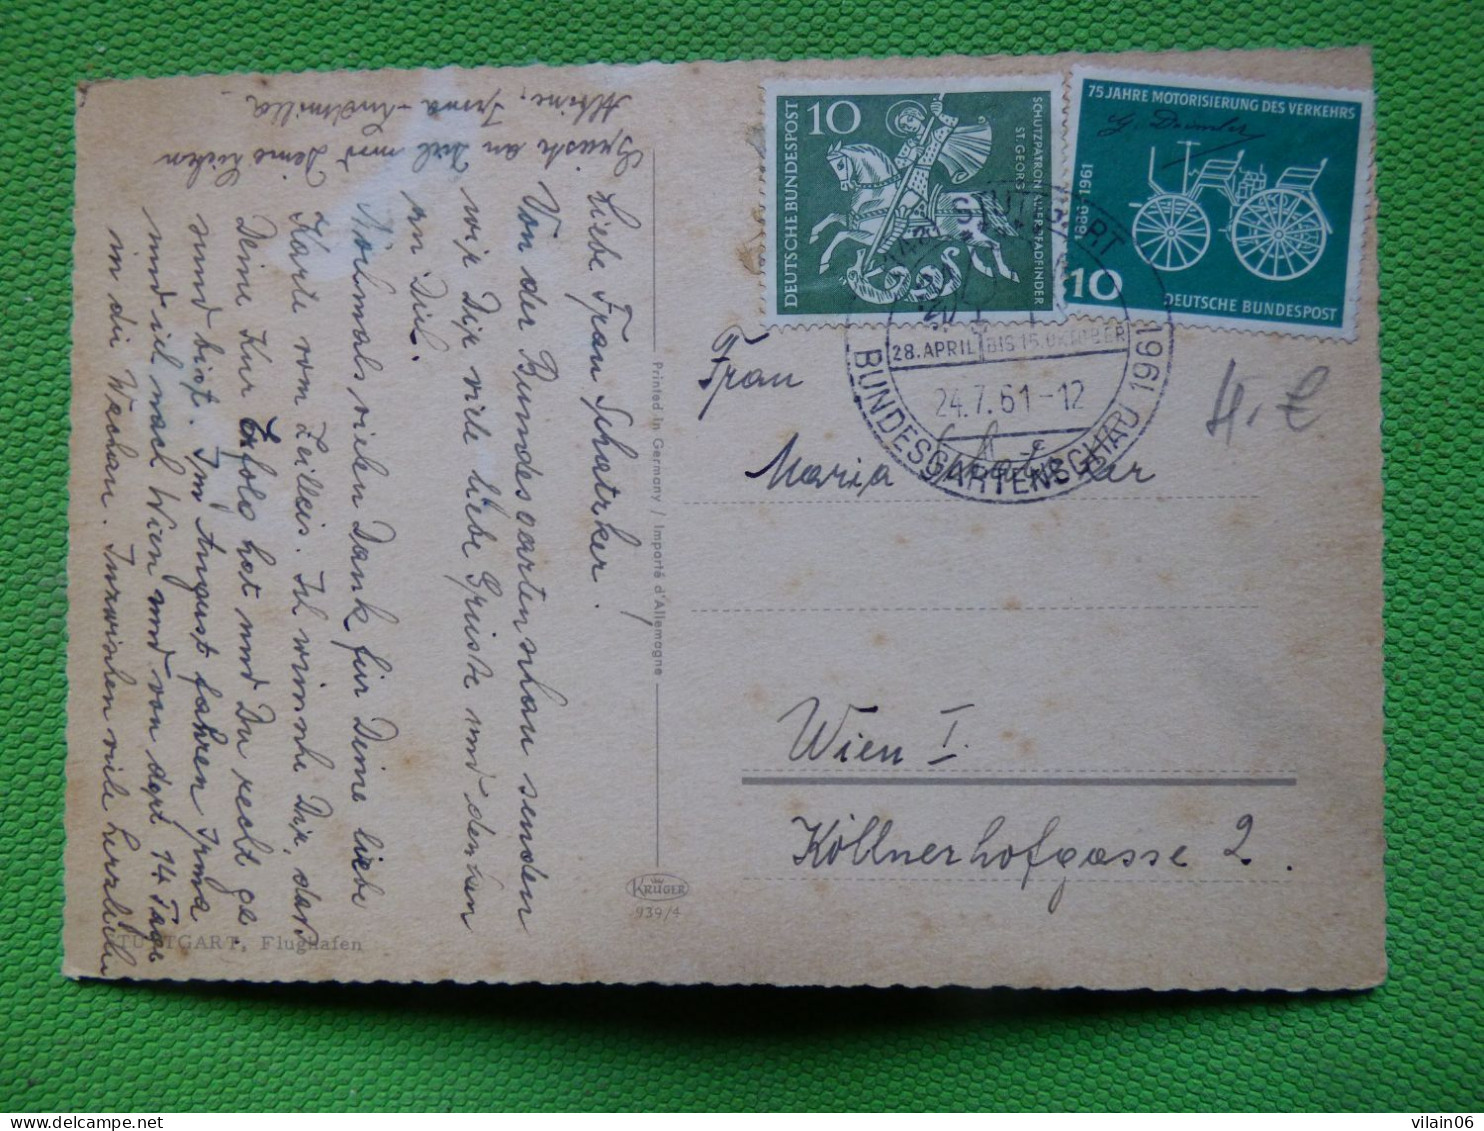 Liebe Frau Schatzker.
Von der Bundesgartenschau senden
wir Dir viele liebe Grüsse und denken
an Dich.
Nochmals vielen Dank für Deine liebe
Karte von Zeilleis. Ich wünsche Dir, dass
Deine Kur Erfolg hat und Du recht ge-
sund bist. Im August fahren Irma
und ich nach Wien und von dort 14 Tage
in die Wachau. Inzwischen viele herzliche
Grüsse an Dich und Deine Lieben
Irma
STUTTGART, Flughafen
Printed in Germany / Importé d'Allemagne
KRÜGER
939/4
10
DEUTSCHE BUNDESPOST
SCHUTZPATRON DER PFADFINDER
ST. GEORG
75 JAHRE MOTORISIERUNG DES VERKEHRS
G. Daimler
1886 1961
10
DEUTSCHE BUNDESPOST
STUTTGART
28. APRIL BIS 15. OKTOBER
24.7.61-12
BUNDESGARTENSCHAU 1961
Frau
Maria Schatzker
Wien I.
Köllnerhofgasse 2.
vilain06